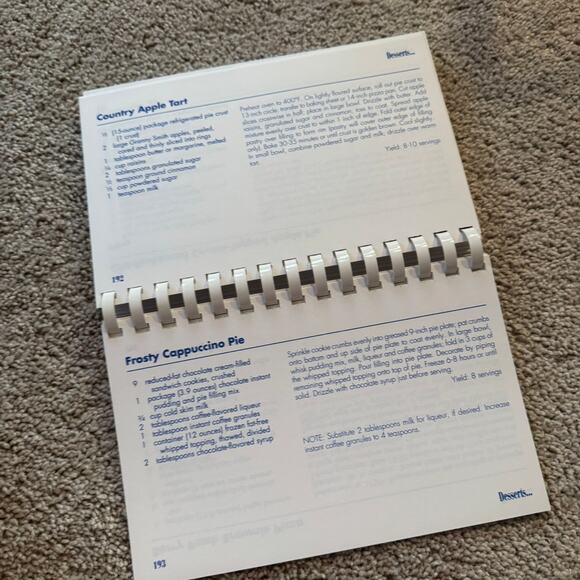 Desserts...
Country Apple Tart
½ (15-ounce) package refrigerated pie crust
(1 crust)
2 large Granny Smith apples, peeled,
cored and thinly sliced into rings
1 tablespoon butter or margarine, melted
¼ cup raisins
2 tablespoons granulated sugar
½ teaspoon ground cinnamon
½ cup powdered sugar
1 teaspoon milk
Preheat oven to 400°F. On lightly floured surface, roll out pie crust to
13-inch circle; transfer to baking sheet or 14-inch pizza pan. Cut apple
slices crosswise in half; place in large bowl. Drizzle with butter. Add
raisins, granulated sugar and cinnamon; toss to coat. Spread apple
mixture evenly over crust to within 1 inch of edge. Fold outer edge of
pastry over filling to form rim (pastry will cover outer edge of filling
only). Bake 30-35 minutes or until crust is golden brown. Cool slightly.
In small bowl, combine powdered sugar and milk; drizzle over warm
tart.
Yield: 8-10 servings
192
Frosty Cappuccino Pie
9 reduced-fat chocolate cream-filled
sandwich cookies, crushed
1 package (3.9 ounces) chocolate instant
pudding and pie filling mix
¾ cup cold skim milk
2 tablespoons coffee-flavored liqueur
1 tablespoon instant coffee granules
1 container (12 ounces) frozen fat-free
whipped topping, thawed, divided
2 tablespoons chocolate-flavored syrup
Sprinkle cookie crumbs evenly into greased 9-inch pie plate; pat crumbs
onto bottom and up side of pie plate to coat evenly. In large bowl,
whisk pudding mix, milk, liqueur and coffee granules; fold in 3 cups of
the whipped topping. Pour filling into pie plate. Decorate by piping
remaining whipped topping onto top of pie. Freeze 6-8 hours or until
solid. Drizzle with chocolate syrup just before serving.
Yield: 8 servings
NOTE: Substitute 2 tablespoons milk for liqueur, if desired. Increase
instant coffee granules to 4 teaspoons.
Desserts...
193